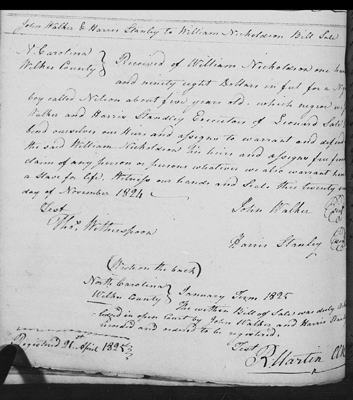 John Walker & Harris Stanley to William Nicholdson Bill Sale
N. Carolina
Wilkes County
Received of William Nicholdson one hun
and ninety eight Dollars in full for a N
boy called Nelson about five years old. which negroe
Walker and Harris Standley Executors of Leonard Sale
bind ourselves our Heirs and assigns to warrant and defend
the said William Nicholdson his heirs and assigns
claim of any person or persons whatever we also warrant
a slave for life. Witness our hands and Seals this twenty
day of November 1824
Test
John Walker
Thos. Wotherspoon
Harris Stanley
(Wrote on the back)
North Carolina
Wilkes County
January Term 1825
The within Bill of Sale was duly
in open Court by John Walker and Harris
recorded and ordered to be registered.
Test
Registered 21st April 1825
R Martin